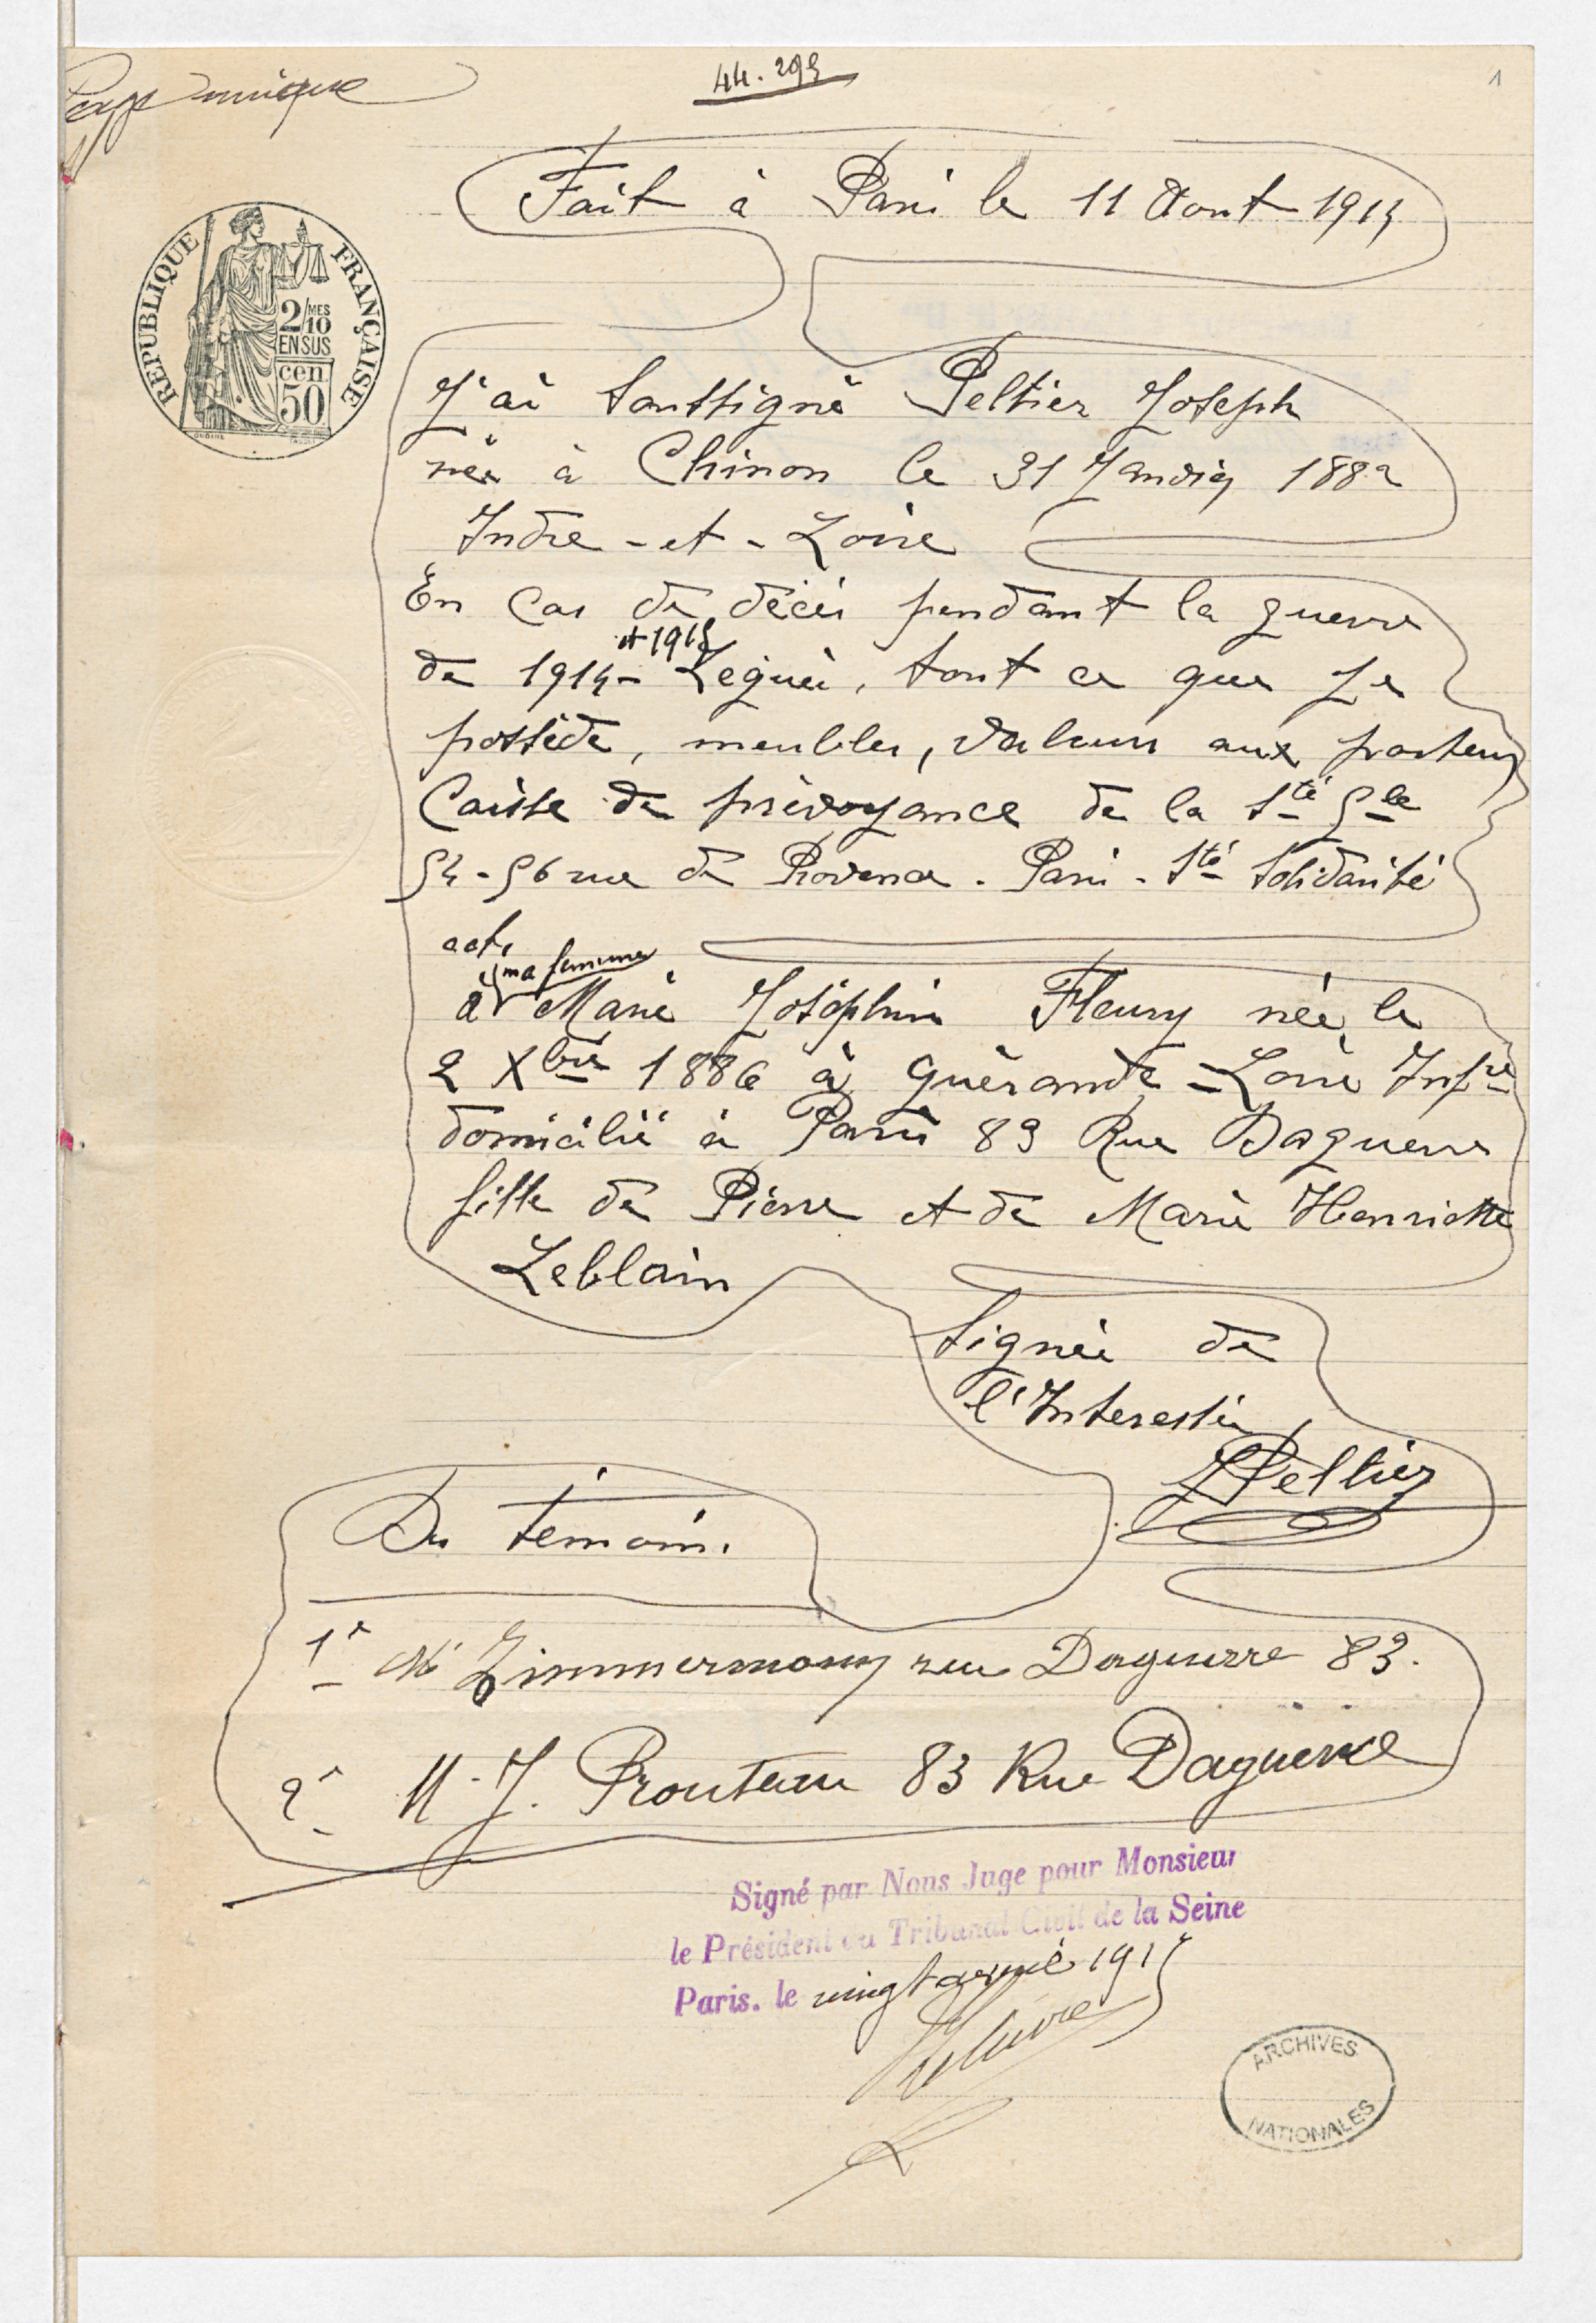 Page unique
44.295
1
Fait à Paris le 11 Aout 1914
REPUBLIQUE FRANÇAISE
2/10 MES
EN SUS
cen
50
J'ai soussigné Peltier Joseph
née à Chinon le 31 Janvier 1882
Indre-et-Loire
En cas de décès pendant la guerre
et 1915
de 1914- Leguée, tout ce que je
possède, meubles, valeurs aux porteurs
Caisse de prévoyance de la Sté Gle
54-56 rue de Provence. Paris. Sté Solidarité
ect,
ma femme
à Marie Joséphine Fleury née le
2 Xbre 1886 à Guèrande - Loire Infre
domicilié à Paris 83 Rue Daguerre
fille de Pierre et de Marie Henriette
Leblain
Signée de
l'Interessée
J Peltier
Du temoin.
1e Mr Zimmermann rue Daguerre 83.
2e M. J. Prouteau 83 Rue Daguerre
Signé par Nous Juge pour Monsieur
le Président du Tribunal Civil de la Seine
Paris. le vingt avril 1915
ARCHIVES
NATIONALES